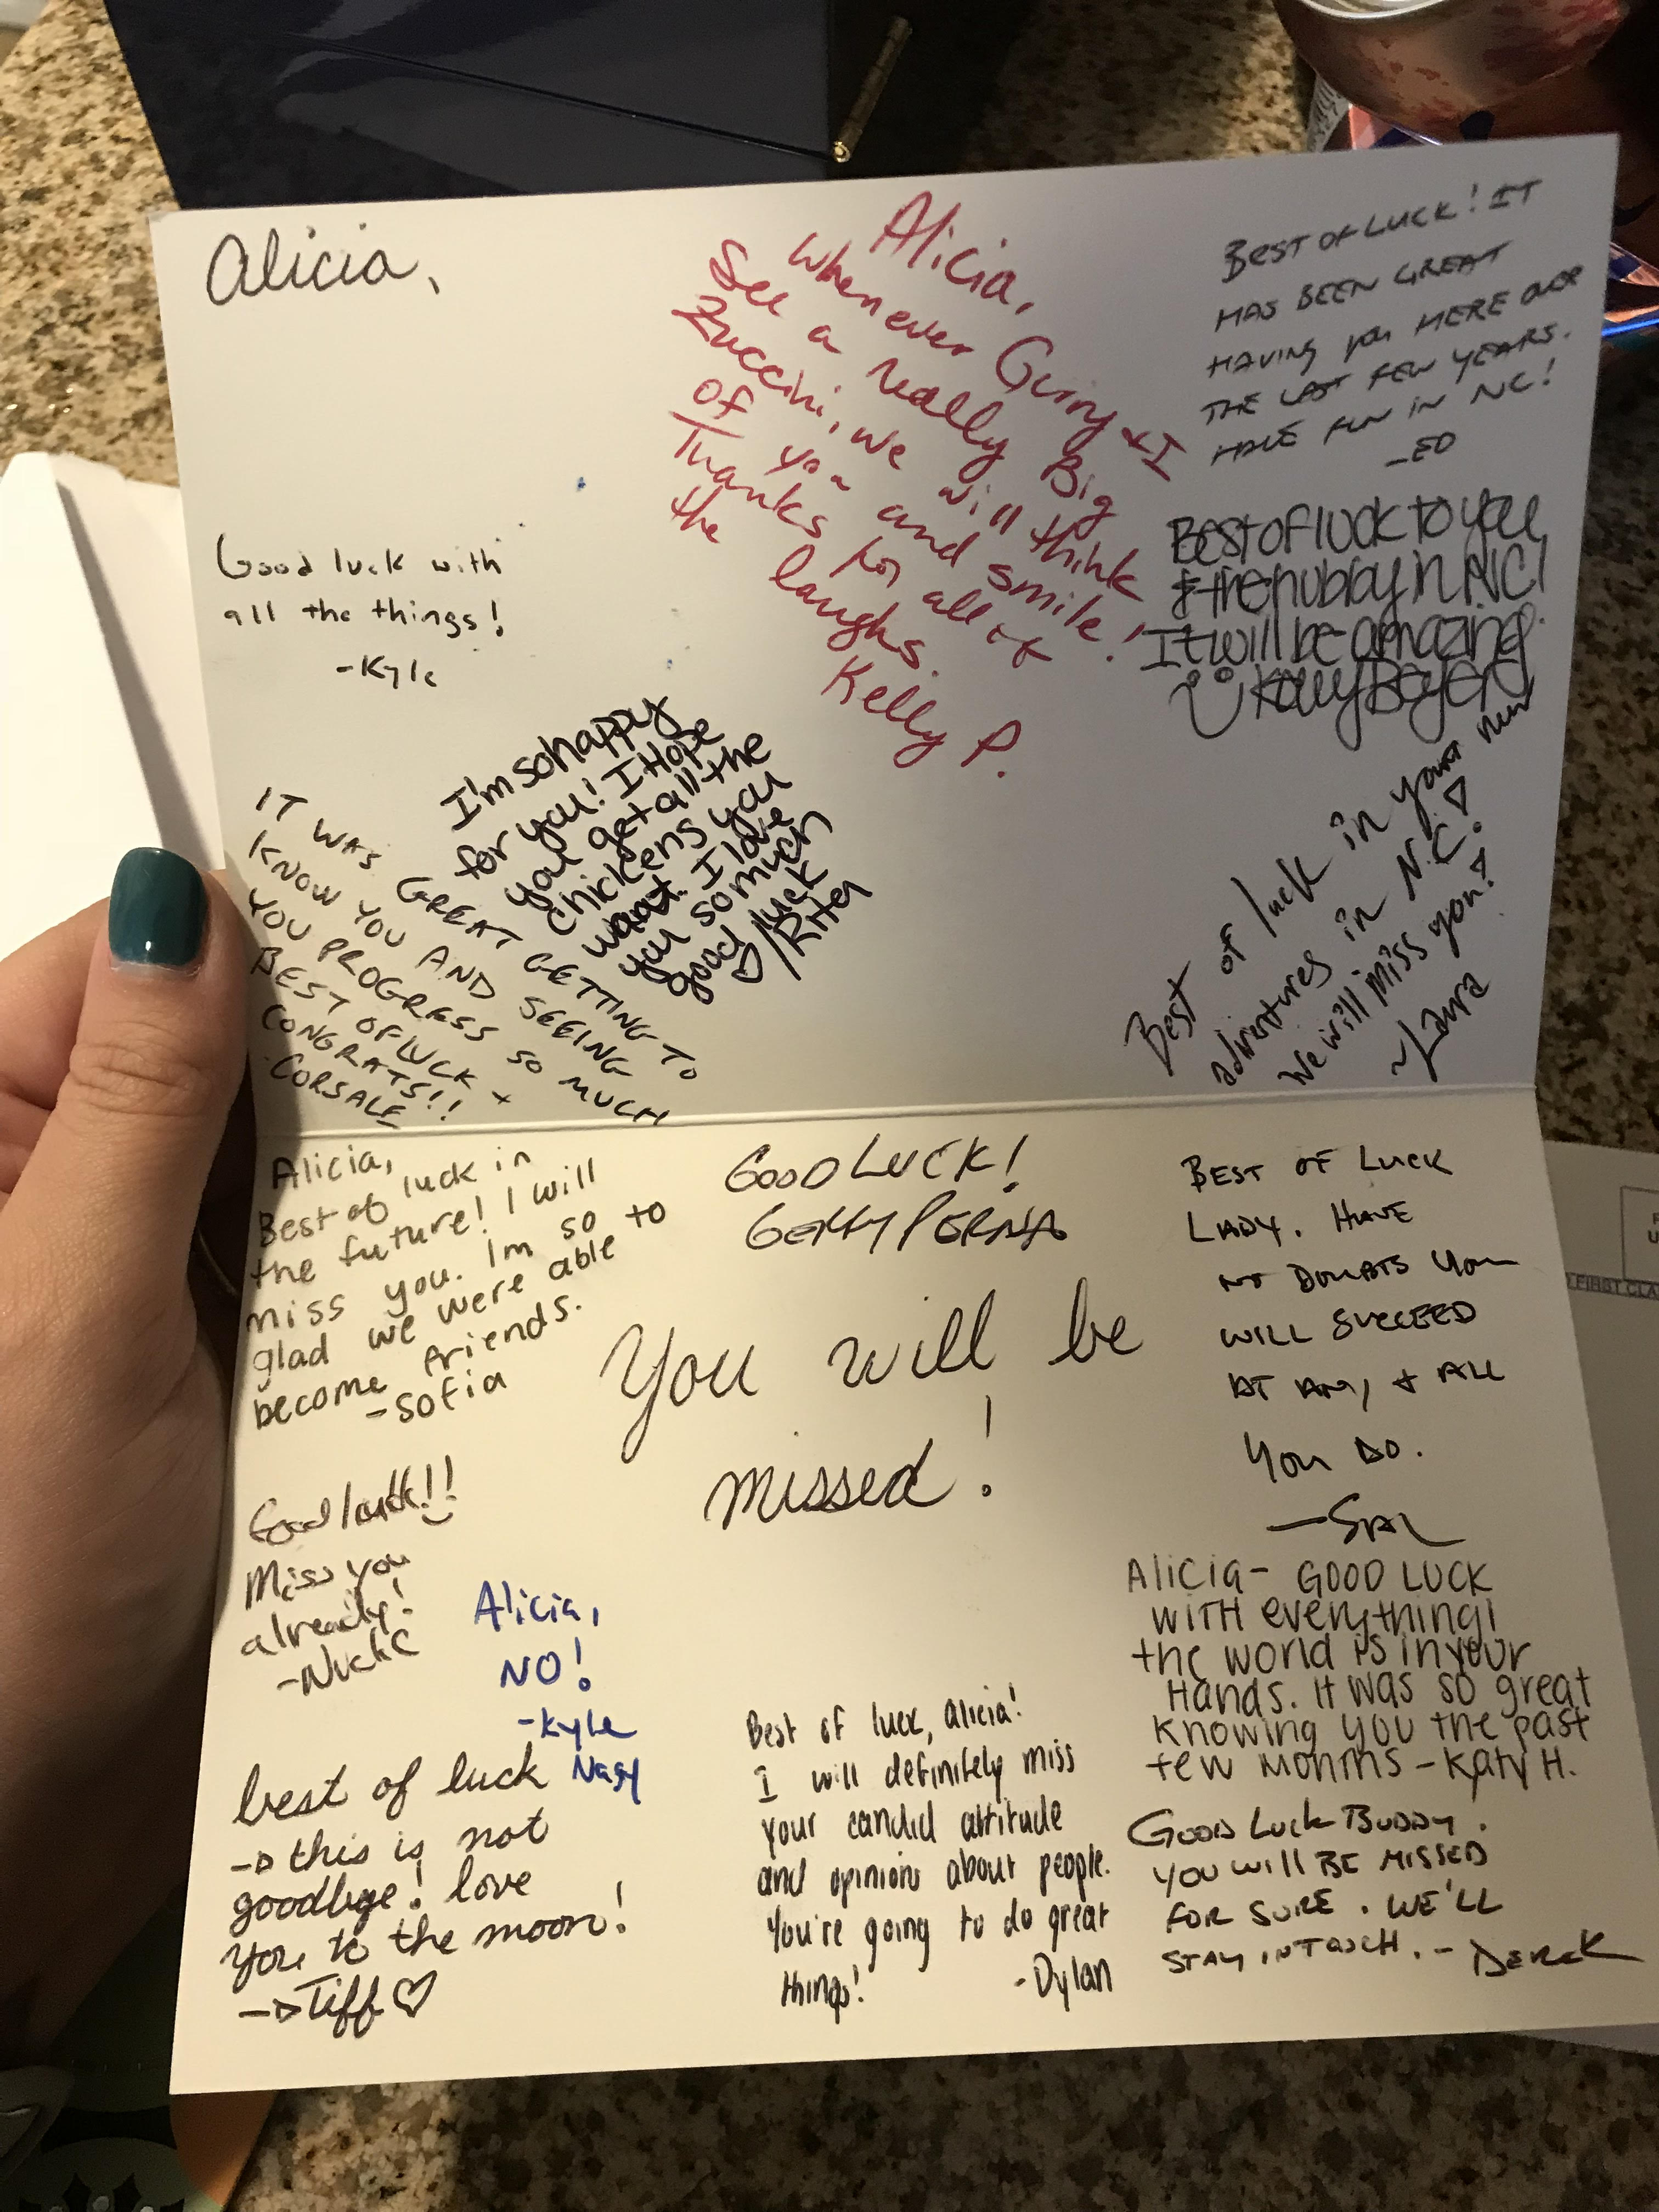 Alicia,
Good luck with
all the things!
-Kyle
Alicia,
Whenever Gerry & I
See a really Big
Zuccini, we will think
of you and smile!
Thanks for all of
the laughs.
Kelly P.
BEST OF LUCK! IT
HAS BEEN GREAT
HAVING YOU HERE OVER
THE LAST FEW YEARS.
HAVE FUN IN NC!
-ED
Best of luck to you
& the hubby in NC!
It will be amazing.
Best of luck in your new
adventures in N.C.!
We will miss you!
~Laura
I'm so happy
for you! I Hope
you get all the
chickens you
want. I love
you so much
good luck
♡/Rita
IT WAS GREAT GETTING TO
KNOW YOU AND SEEING
YOU PROGRESS SO MUCH
BEST OF LUCK +
CONGRATS!!
-CORSALE
Alicia,
Best of luck in
the future! I will
miss you. Im so
glad we were able to
become friends.
-Sofia
GOOD LUCK!
GERRY
BEST OF LUCK
LADY. HAVE
NO DOUBTS YOU
WILL SUCCEED
AT ANY & ALL
YOU DO.
-SAL
You will be
missed!
Good luck!!
Miss you
already!
Alicia,
NO!
-Kyle
Nagy
best of luck
→ this is not
goodbye! love
you to the moon!
→Tiff♡
Best of luck, Alicia!
I will definitely miss
your candid attitude
and opinions about people.
You're going to do great
things! -Dylan
Alicia- GOOD LUCK
WITH everything!
the world is in your
Hands. It was so great
Knowing you the past
few months -Katy H.
GOOD LUCK BUDDY.
YOU WILL BE MISSED
FOR SURE. WE'LL
STAY IN TOUCH. - DEREK
FIRST CLA